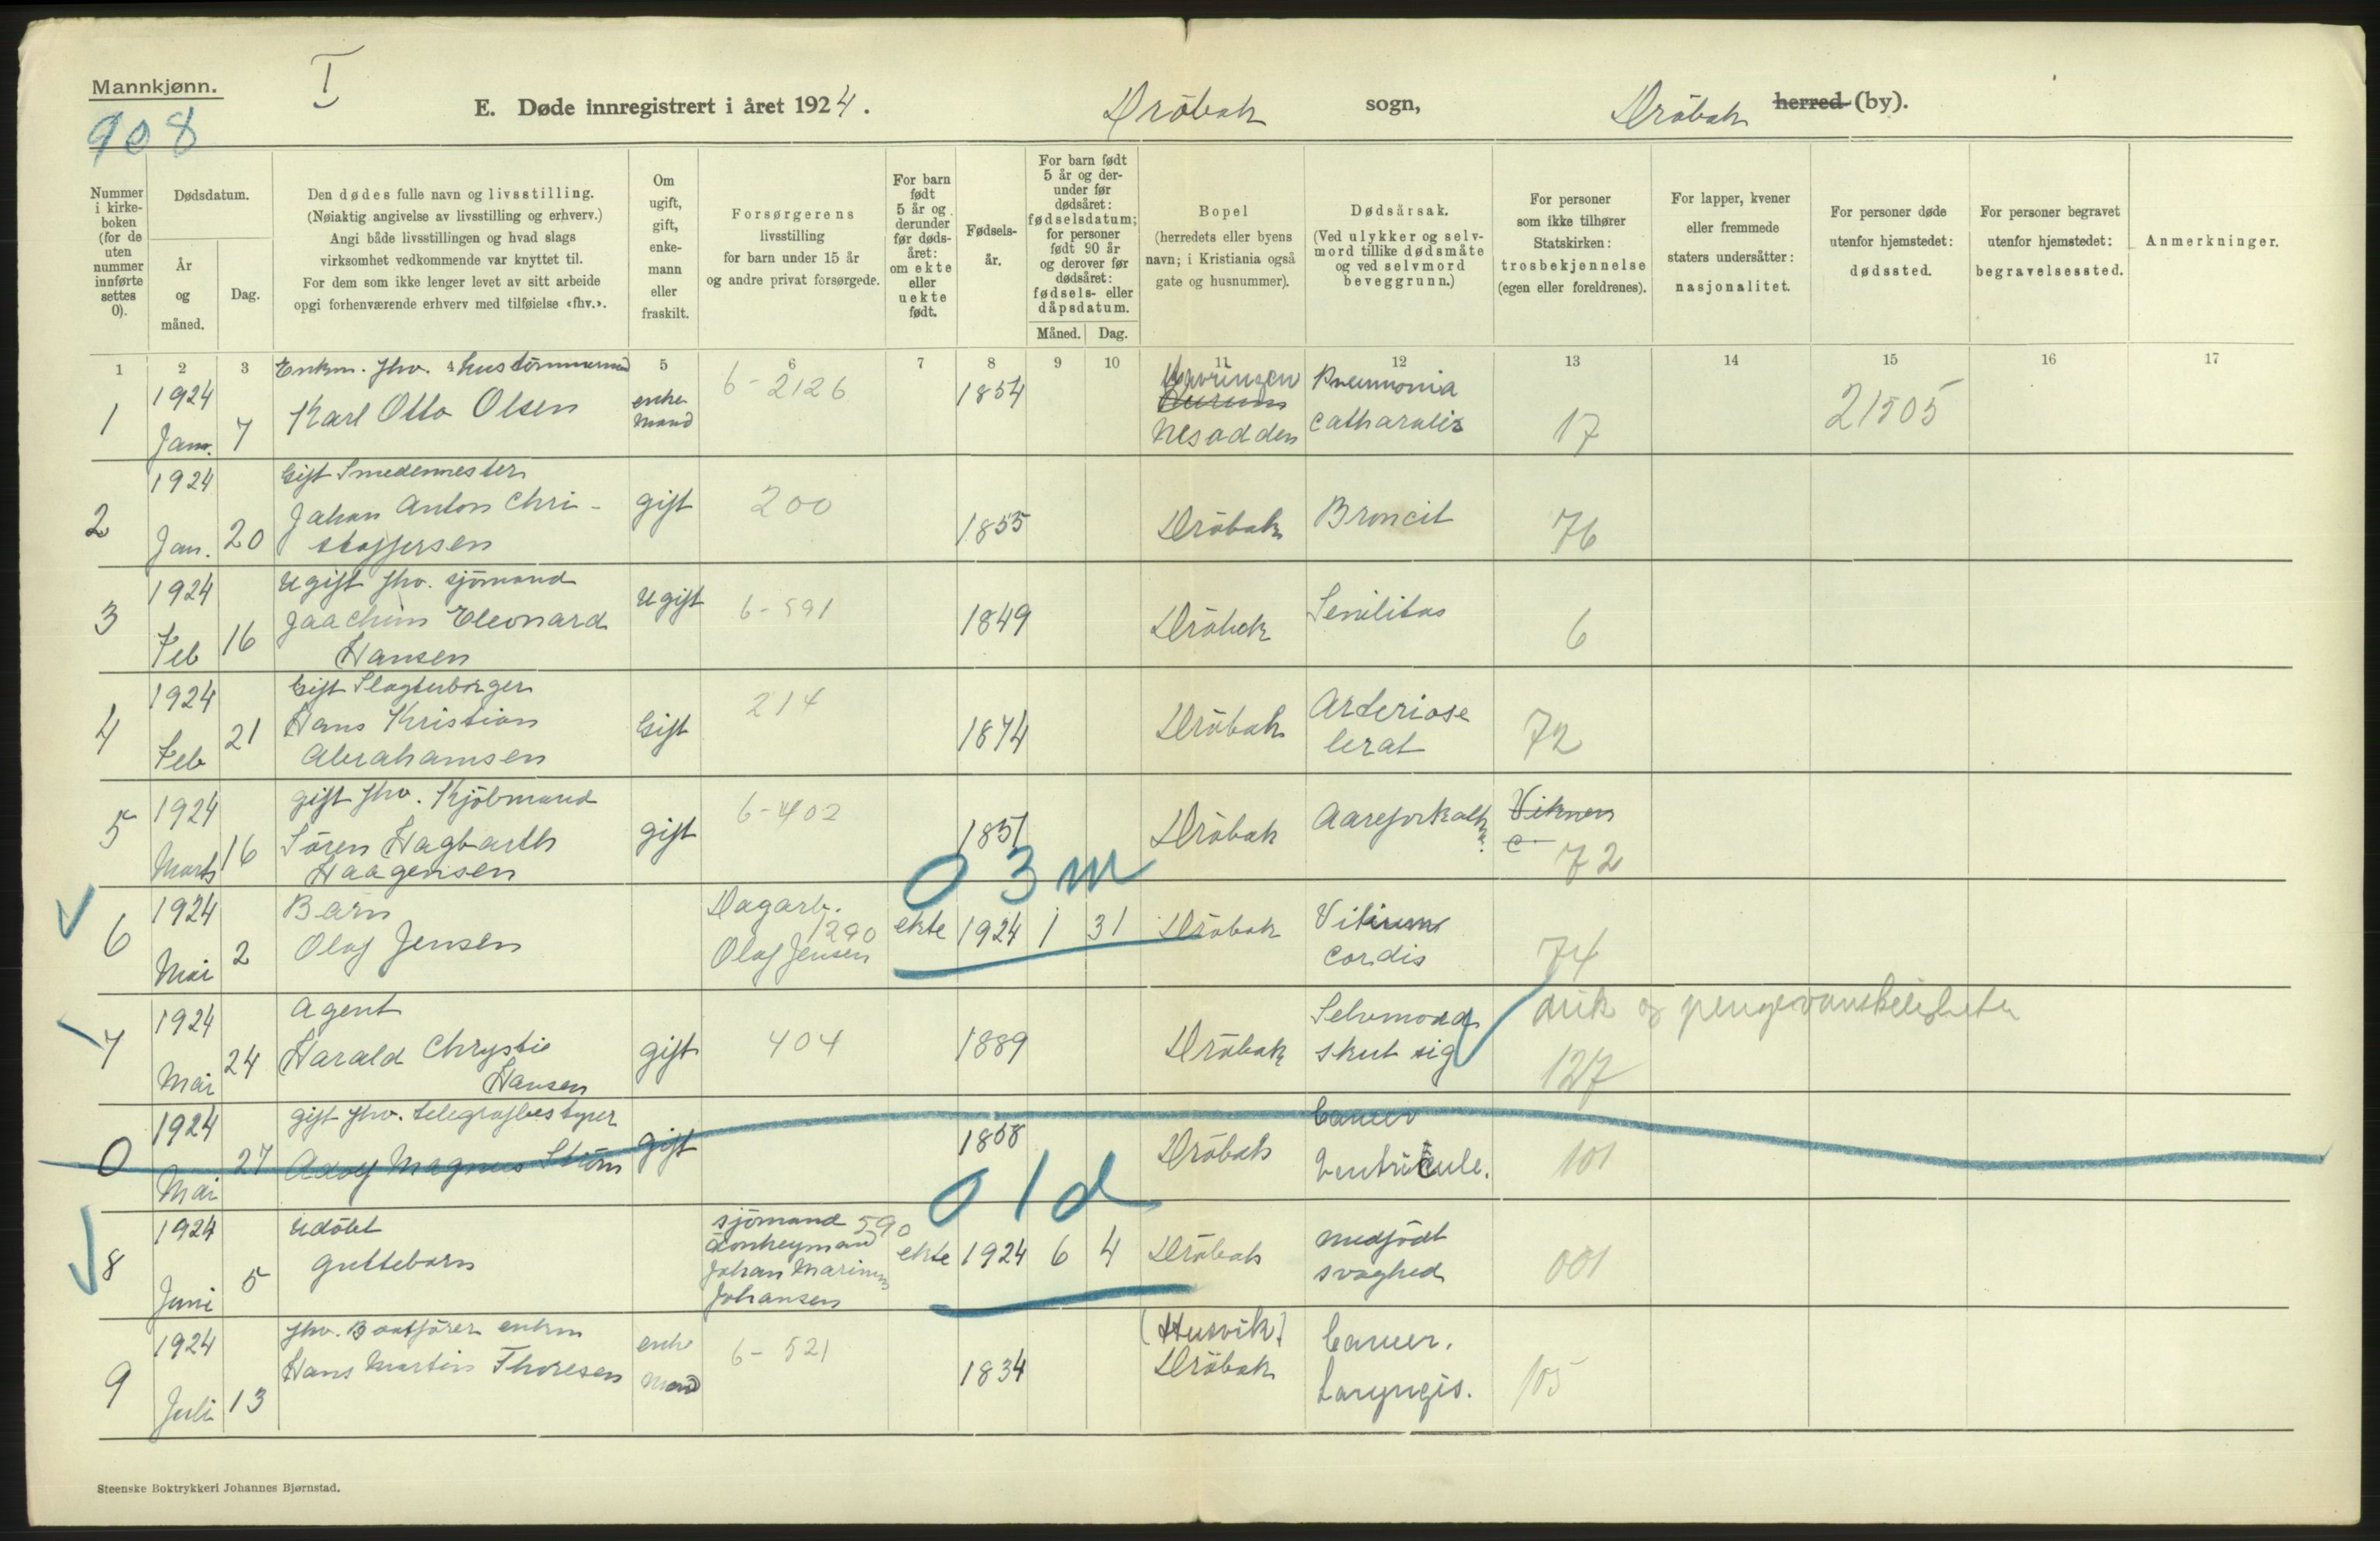 Mannkjønn.
I
908
E. Døde innregistrert i året 1924.
Dröbak sogn,
Dröbak herred (by).
Nummer i kirke-boken (for de uten nummer innførte settes 0).
Dødsdatum.
År og måned.
Dag.
Den dødes fulle navn og livsstilling.
(Nøiaktig angivelse av livsstilling og erhverv.)
Angi både livsstillingen og hvad slags
virksomhet vedkommende var knyttet til.
For dem som ikke lenger levet av sitt arbeide
opgi forhenværende erhverv med tilføielse «fhv.».
Om ugift, gift, enke-mann eller fraskilt.
Forsørgerens
livsstilling
for barn under 15 år
og andre privat forsørgede.
For barn født 5 år og derunder før døds-året: om ekte eller uekte født.
Fødsels-år.
For barn født 5 år og der-under før dødsåret: fødselsdatum; for personer født 90 år og derover før dødsåret: fødsels- eller dåpsdatum.
Måned.
Dag.
Bopel
(herredets eller byens
navn; i Kristiania også
gate og husnummer).
Dødsårsak.
(Ved ulykker og selv-
mord tillike dødsmåte
og ved selvmord
beveggrunn.)
For personer
som ikke tilhører
Statskirken:
trosbekjennelse
(egen eller foreldrenes).
For lapper, kvener
eller fremmede
staters undersåtter:
nasjonalitet.
For personer døde
utenfor hjemstedet:
dødssted.
For personer begravet
utenfor hjemstedet:
begravelsessted.
Anmerkninger.
1 2 3 4 5 6 7 8 9 10 11 12 13 14 15 16 17
1
1924
Jan.
7
Enkm. fhv. hustömmermand
Karl Otto Olsen
enke
mand
6-2126
1854
Nesodden
Pneumonia
catharalis
17
21505
2
1924
Jan.
20
Gift Smedemester
Johan Anton Chri-
stoffersen
gift
200
1855
Dröbak
Broncit
76
3
1924
Feb
16
Ugift fhv. sjömand
Joachim Eleonard
Hansen
Ugift
6-591
1849
Dröbak
Senilitas
6
4
1924
Feb
21
Gift Slagterborger
Hans Kristian
Abrahamsen
Gift
214
1874
Dröbak
Arteriose
lerat
72
5
1924
Marts
16
gift fhv. Kjöbmand
Sören Hagbarth
Haagensen
gift
6-402
1851
Dröbak
Aareforkalkn.
72
03m
6
1924
Mai
2
Barn
Olaf Jensen
Dagarb.
1290
Olaf Jensen
ekte
1924
1
31
Dröbak
Vitium
cordis
74
7
1924
Mai
24
Agent
Harald Chrystie
Hansen
gift
404
1889
Dröbak
Selvmord
skut sig
drik og pengevanskeligheter
127
0
1924
Mai
27
gift fhv. telegrafbestyrer
Adolf Magnus Ström
gift
1858
Dröbak
Cancer
Ventricule.
101
01d
8
1924
Juni
5
Udöbt
guttebarn
sjömand 590
donkeymand
Johan Marinius
Johansen
ekte
1924
6
4
Dröbak
medfödt
svaghed
001
9
1924
Juli
13
fhv. Baatförer enkm
Hans Martin Thoresen
enke
mand
6-521
1834
(Husvik)
Dröbak
Cancer.
Laryngis.
105
Steenske Boktrykkeri Johannes Bjørnstad.